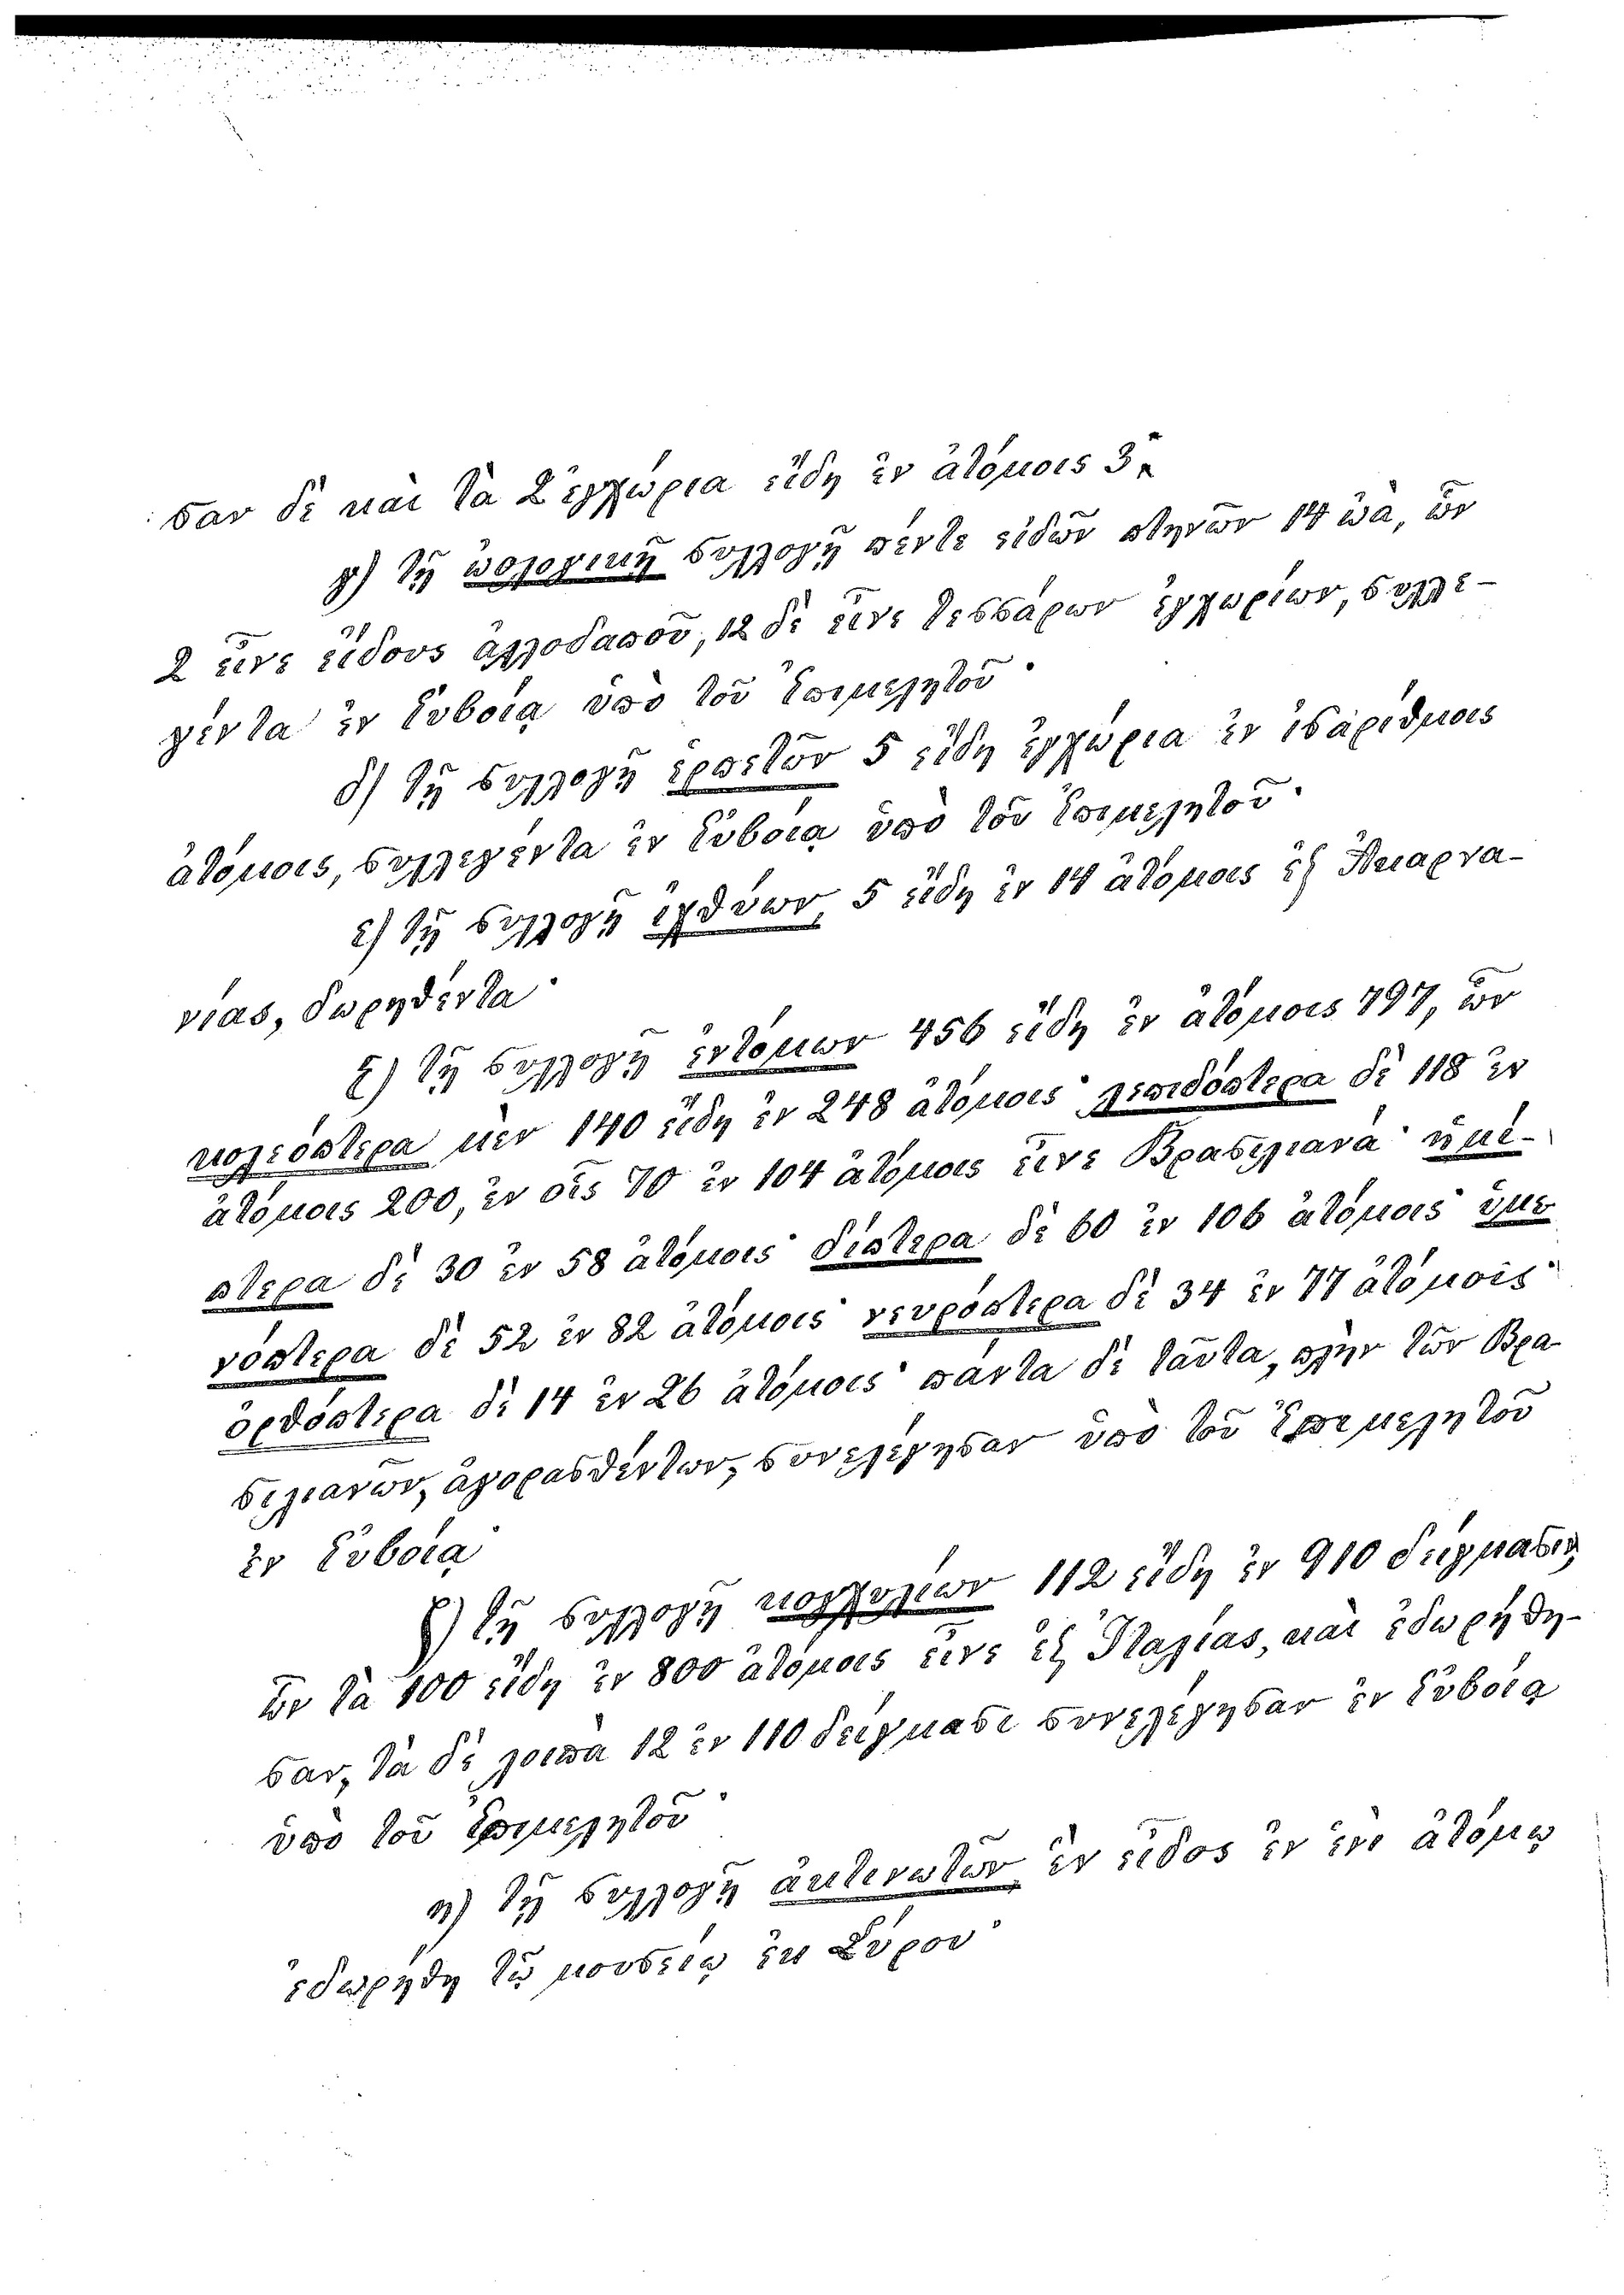 σαν δὲ καὶ τὰ 2 ἐγχώρια εἴδη ἐν ἀτόμοις 3·
γ) τῇ ᾠολογικῇ συλλογῇ πέντε εἰδῶν πτηνῶν 14 ὠὰ, ὧν
2 εἶνε εἴδους ἀλλοδαποῦ, 12 δὲ εἶνε τεσσάρων ἐγχωρίων, συλλε-
γέντα ἐν Εὐβοίᾳ ὑπὸ τοῦ Ἐπιμελητοῦ·
δ) τῇ συλλογῇ ἑρπετῶν 5 εἴδη ἐγχώρια ἐν ἰσαρίθμοις
ἀτόμοις, συλλεγέντα ἐν Εὐβοίᾳ ὑπὸ τοῦ Ἐπιμελητοῦ·
ε) τῇ συλλογῇ ἰχθύων, 5 εἴδη ἐν 14 ἀτόμοις ἐξ Ἀκαρνα-
νίας, δωρηθέντα·
ς) τῇ συλλογῇ ἐντόμων 456 εἴδη ἐν ἀτόμοις 797, ὧν
κολεόπτερα μὲν 140 εἴδη ἐν 248 ἀτόμοις· λεπιδόπτερα δὲ 118 ἐν
ἀτόμοις 200, ἐν οἷς 70 ἐν 104 ἀτόμοις εἶνε Βρασιλιανά· ἡμί-
πτερα δὲ 30 ἐν 58 ἀτόμοις· δίπτερα δὲ 60 ἐν 106 ἀτόμοις· ὑμε
νόπτερα δὲ 52 ἐν 82 ἀτόμοις· νευρόπτερα δὲ 34 ἐν 77 ἀτόμοις·
ὀρθόπτερα δὲ 14 ἐν 26 ἀτόμοις· πάντα δὲ ταῦτα, πλὴν τῶν Βρα
σιλιανῶν, ἀγορασθέντων, συνελέγησαν ὑπὸ τοῦ Ἐπιμελητοῦ
ἐν Εὐβοίᾳ·
ζ) τῇ συλλογῇ κογχυλίων 112 εἴδη ἐν 910 δείγμασιν,
ὧν τὰ 100 εἴδη ἐν 800 ἀτόμοις εἶνε ἐξ Ἰταλίας, καὶ ἐδωρήθη-
σαν, τὰ δὲ λοιπὰ 12 ἐν 110 δείγμασι συνελέγησαν ἐν Εὐβοίᾳ
ὑπὸ τοῦ Ἐπιμελητοῦ·
η) τῇ συλλογῇ ἀκτινωτῶν ἓν εἶδος ἐν ἑνὶ ἀτόμῳ
ἐδωρήθη τῷ μουσείῳ ἐκ Σύρου·